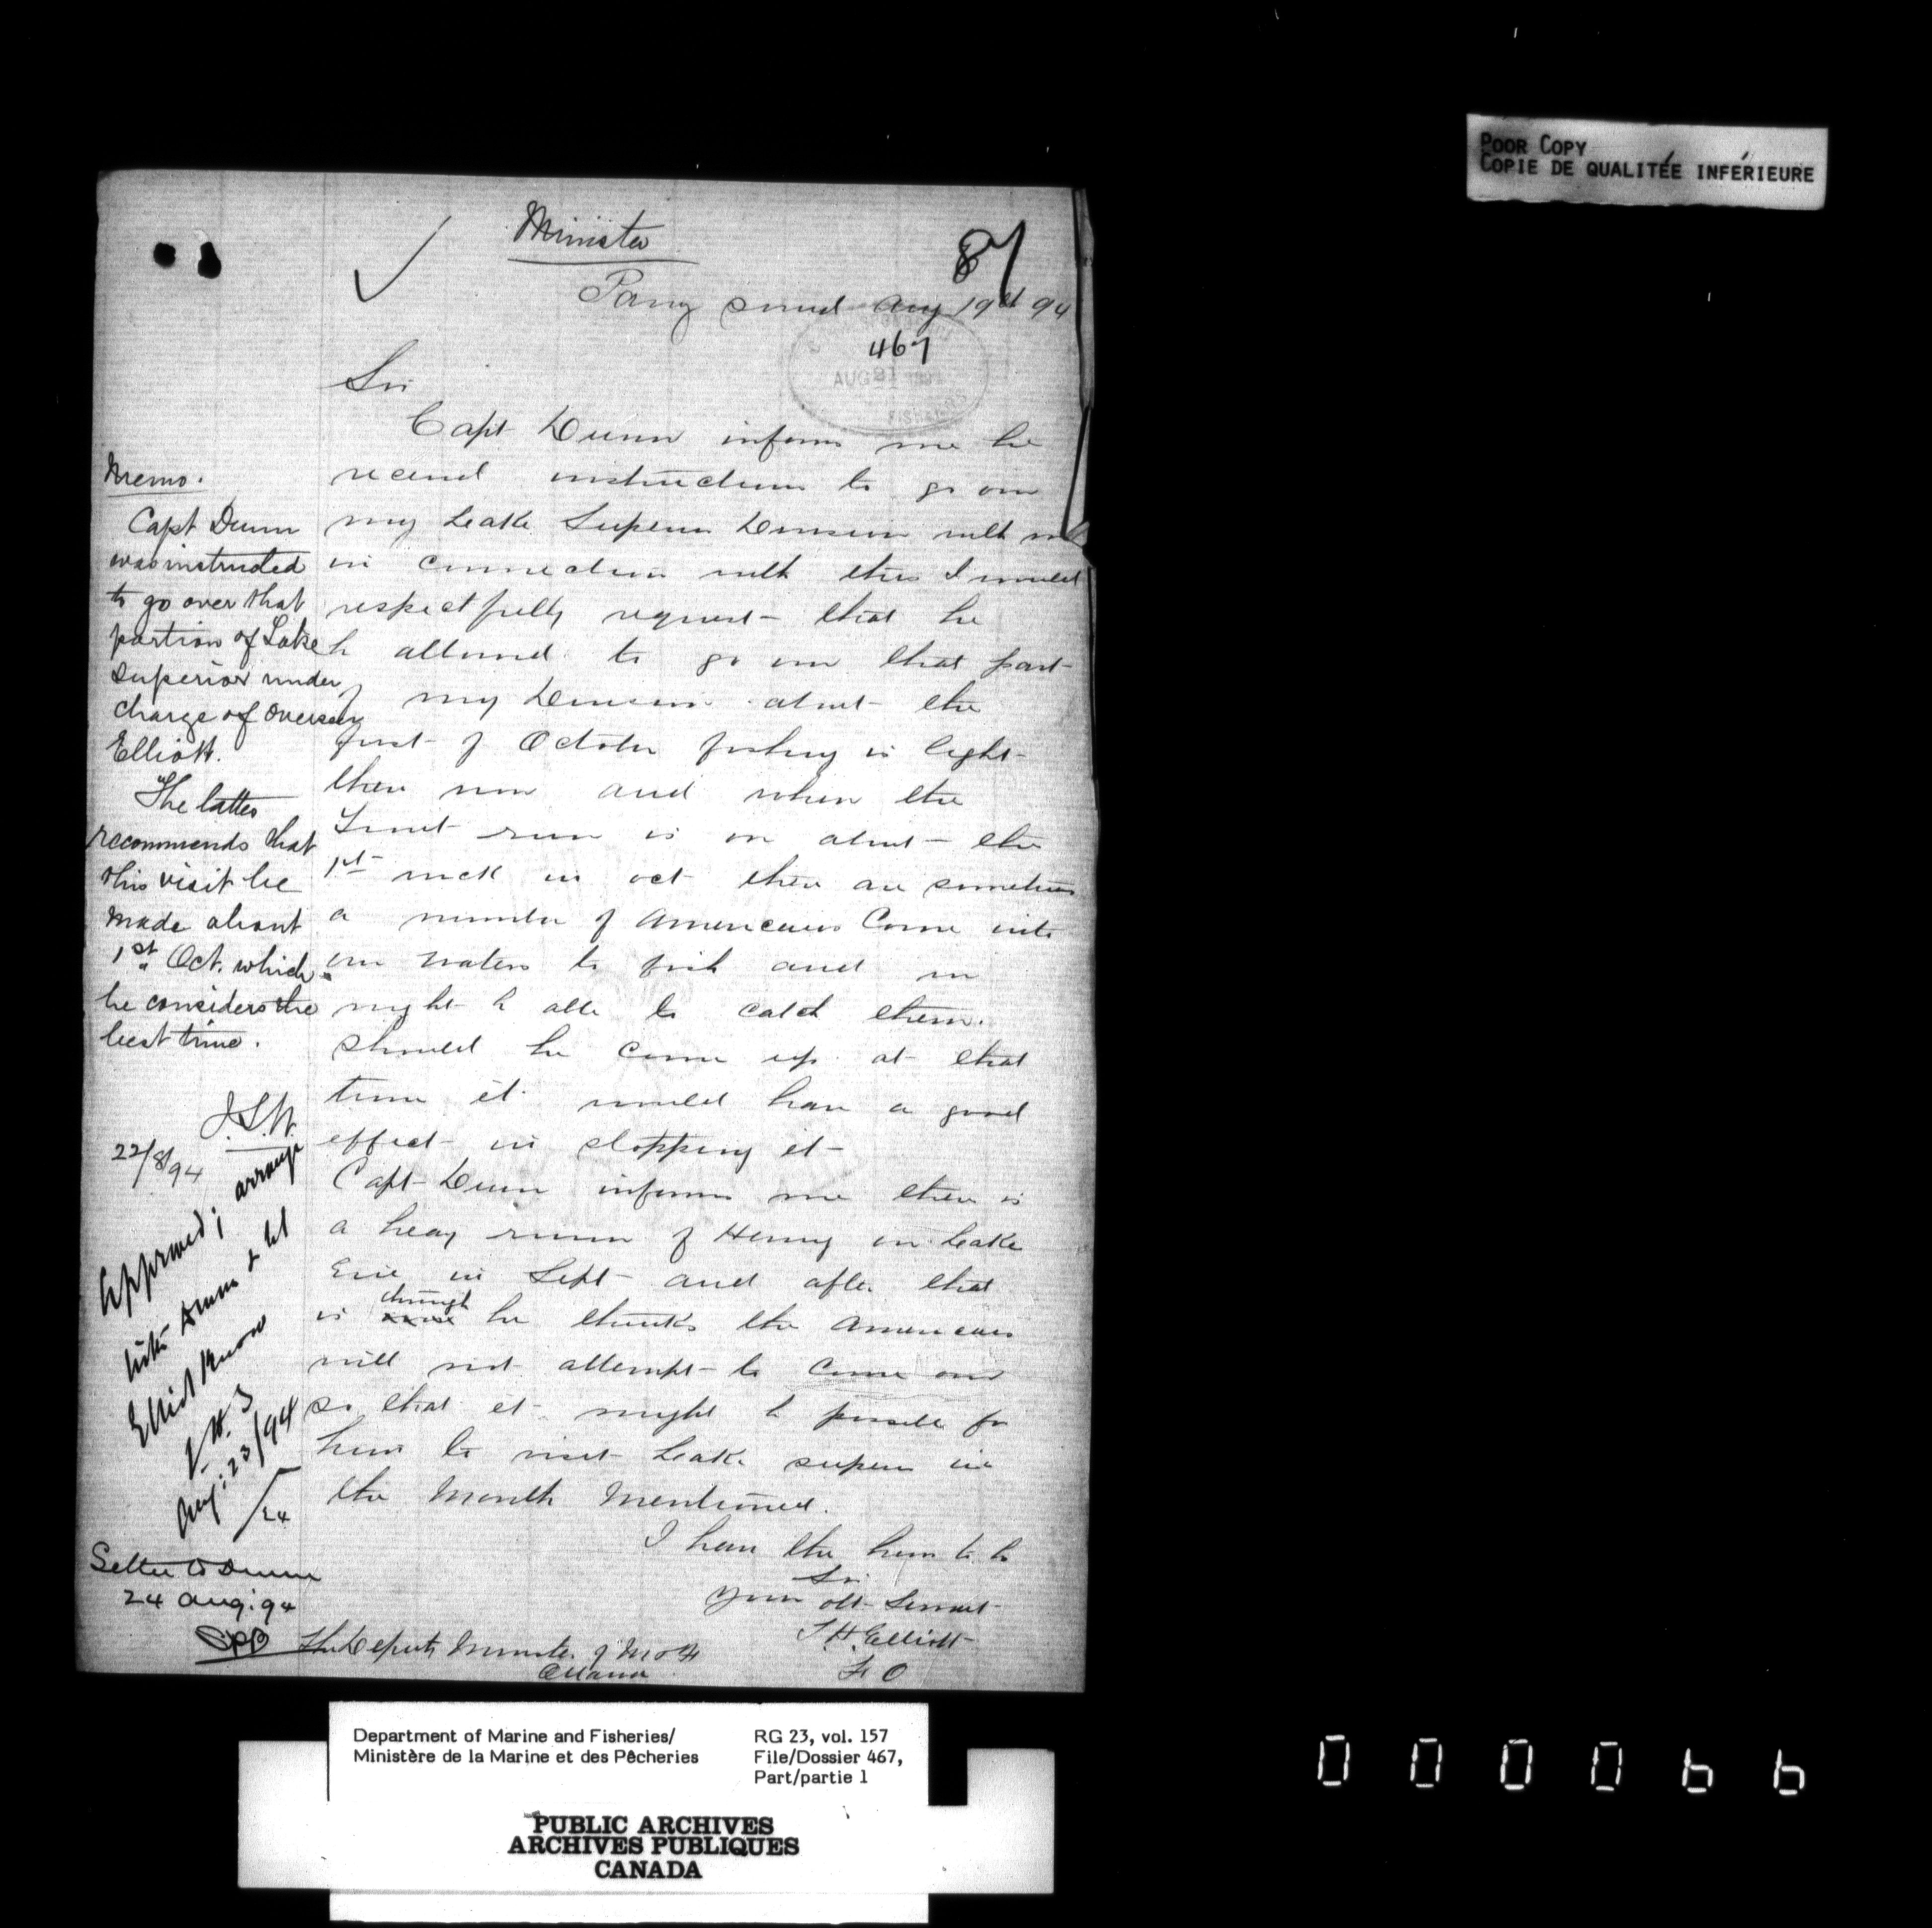 POOR COPY
COPIE DE QUALITÉE INFÉRIEURE
Minister
87
Parry Sound Aug 19th 94
467
AUG 21 1894
FISHERIES
Sir
Capt Dunn informs me he
received instructions to go over
my Lake Superior Division with me
in connection with this I would
respectfully request that he
be allowed to go over that part
of my Division about the
first of October fishing is light
there now and when the
Trout run is on about the
1st week in oct there are sometimes
a number of Americans Come into
our waters to fish and we
might be able to catch them.
Should he come up at that
time it would have a good
effect in stopping it
Capt Dunn informs me there is
a heavy run of Herring in Lake
Erie in Sept and after that
is through he thinks the Americans
will not attempt to Come over
so that it might be possible for
him to visit Lake superior in
the Month Mentioned.
I have the honor to be
Sir
your obt Servant
T H Elliott
F O
The Deputy Minister of M & F
Ottawa
Memo.
Capt Dunn
was instructed
to go over that
portion of Lake
Superior under
charge of Overseer
Elliott.
The latter
recommends that
this visit be
made about
1st Oct. which
he considers the
best time.
J.S.W.
22/8/94
Approved; arrange
with Dunn & let
Elliott know
Aug: 23/94
/24
Letter to Dunn
24 Aug: 94
Department of Marine and Fisheries/
Ministère de la Marine et des Pêcheries
RG 23, vol. 157
File/Dossier 467,
Part/partie 1
PUBLIC ARCHIVES
ARCHIVES PUBLIQUES
CANADA
000066